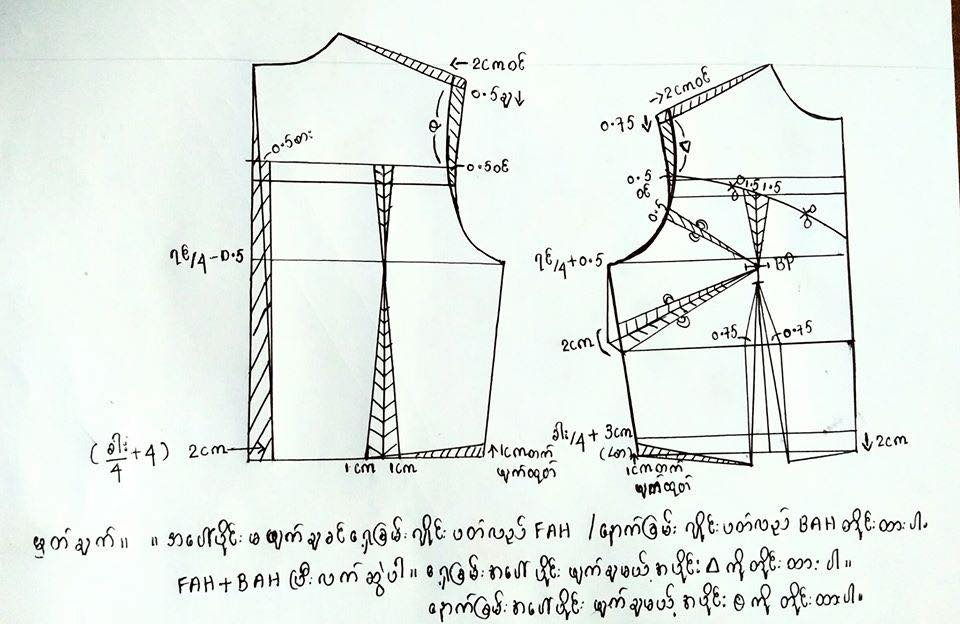 ← 2cmဝင်
0.5ချ↓
0.5စား
0.5ဝင်
ရင်/4-0.5
(ခါး/4+4) 2cm
1cm 1cm
↑1cmတက်
ဖျက်ထုတ်
→2cmဝင်
0.75 ↓
△
0.5
ဝင်
1.5 1.5
0.5
ရင်/4+0.5
BP
2cm
0.75 0.75
ခါး/4 + 3cm
↓2cm
1cmတက်
ဖျက်ထုတ်
မှတ်ချက်။ ။ အပေါ်ပိုင်း မဖျက်ချခင် ရှေ့ခြမ်း လှိုင်း ပတ်လည် FAH / နောက်ခြမ်း လှိုင်း ပတ်လည် BAH တိုင်းထားပါ။
FAH+BAH ပြီး လက်ဆွဲပါ။ ရှေ့ခြမ်း အပေါ်ပိုင်း ဖျက်ချမယ့် အပိုင်း △ ကို တိုင်းထားပါ။
နောက်ခြမ်း အပေါ်ပိုင်း ဖျက်ချမယ့် အပိုင်း θ ကို တိုင်းထားပါ။